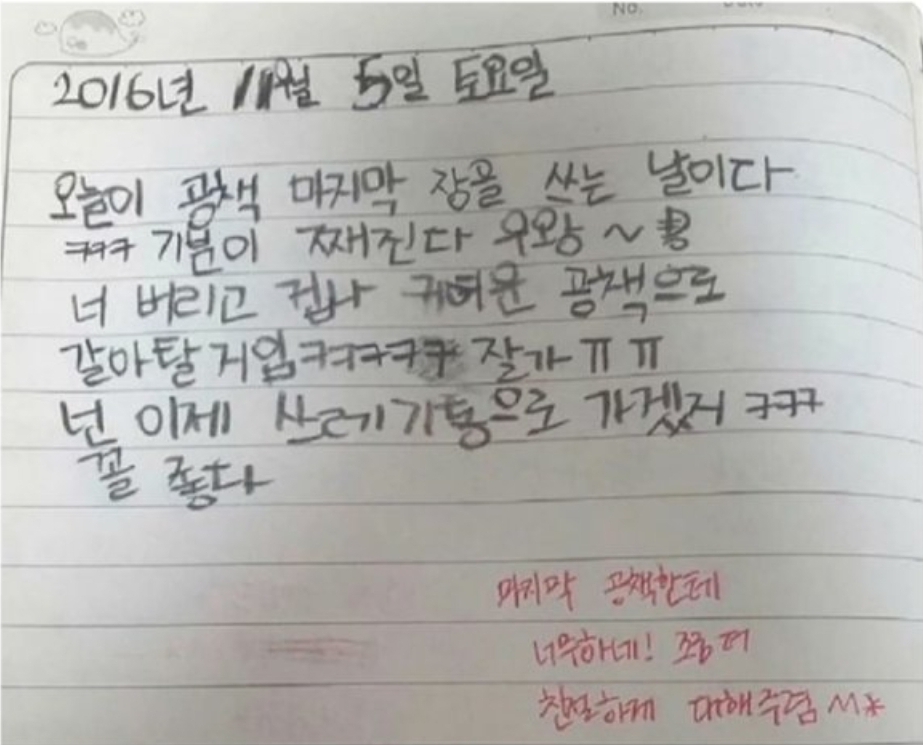 No.
2016년 11월 5일 토요일
오늘이 공책 마지막 장을 쓰는 날이다
ㅋㅋㅋ 기붐이 째진다 우왕~
너 버리고 겁나 귀여운 공책으로
갈아탈 거임ㅋㅋㅋㅋㅋ 잘가 ㅠㅠ
넌 이제 쓰레기통으로 가겠지 ㅋㅋㅋ
꼴 좋다
마지막 공책한테
너무하네! 조금 더
친절하게 대해주렴 ^^*